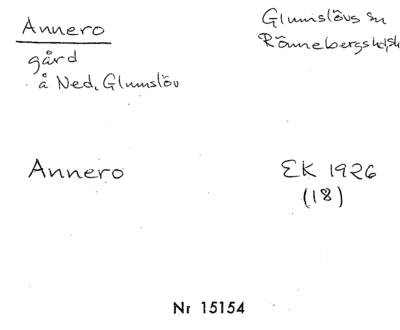 Annero
gård
å Ned. Glumslöv
Glumslövs sn
Rönnebergs hd, sk
Annero
EK 1926
(18)
Nr 15154